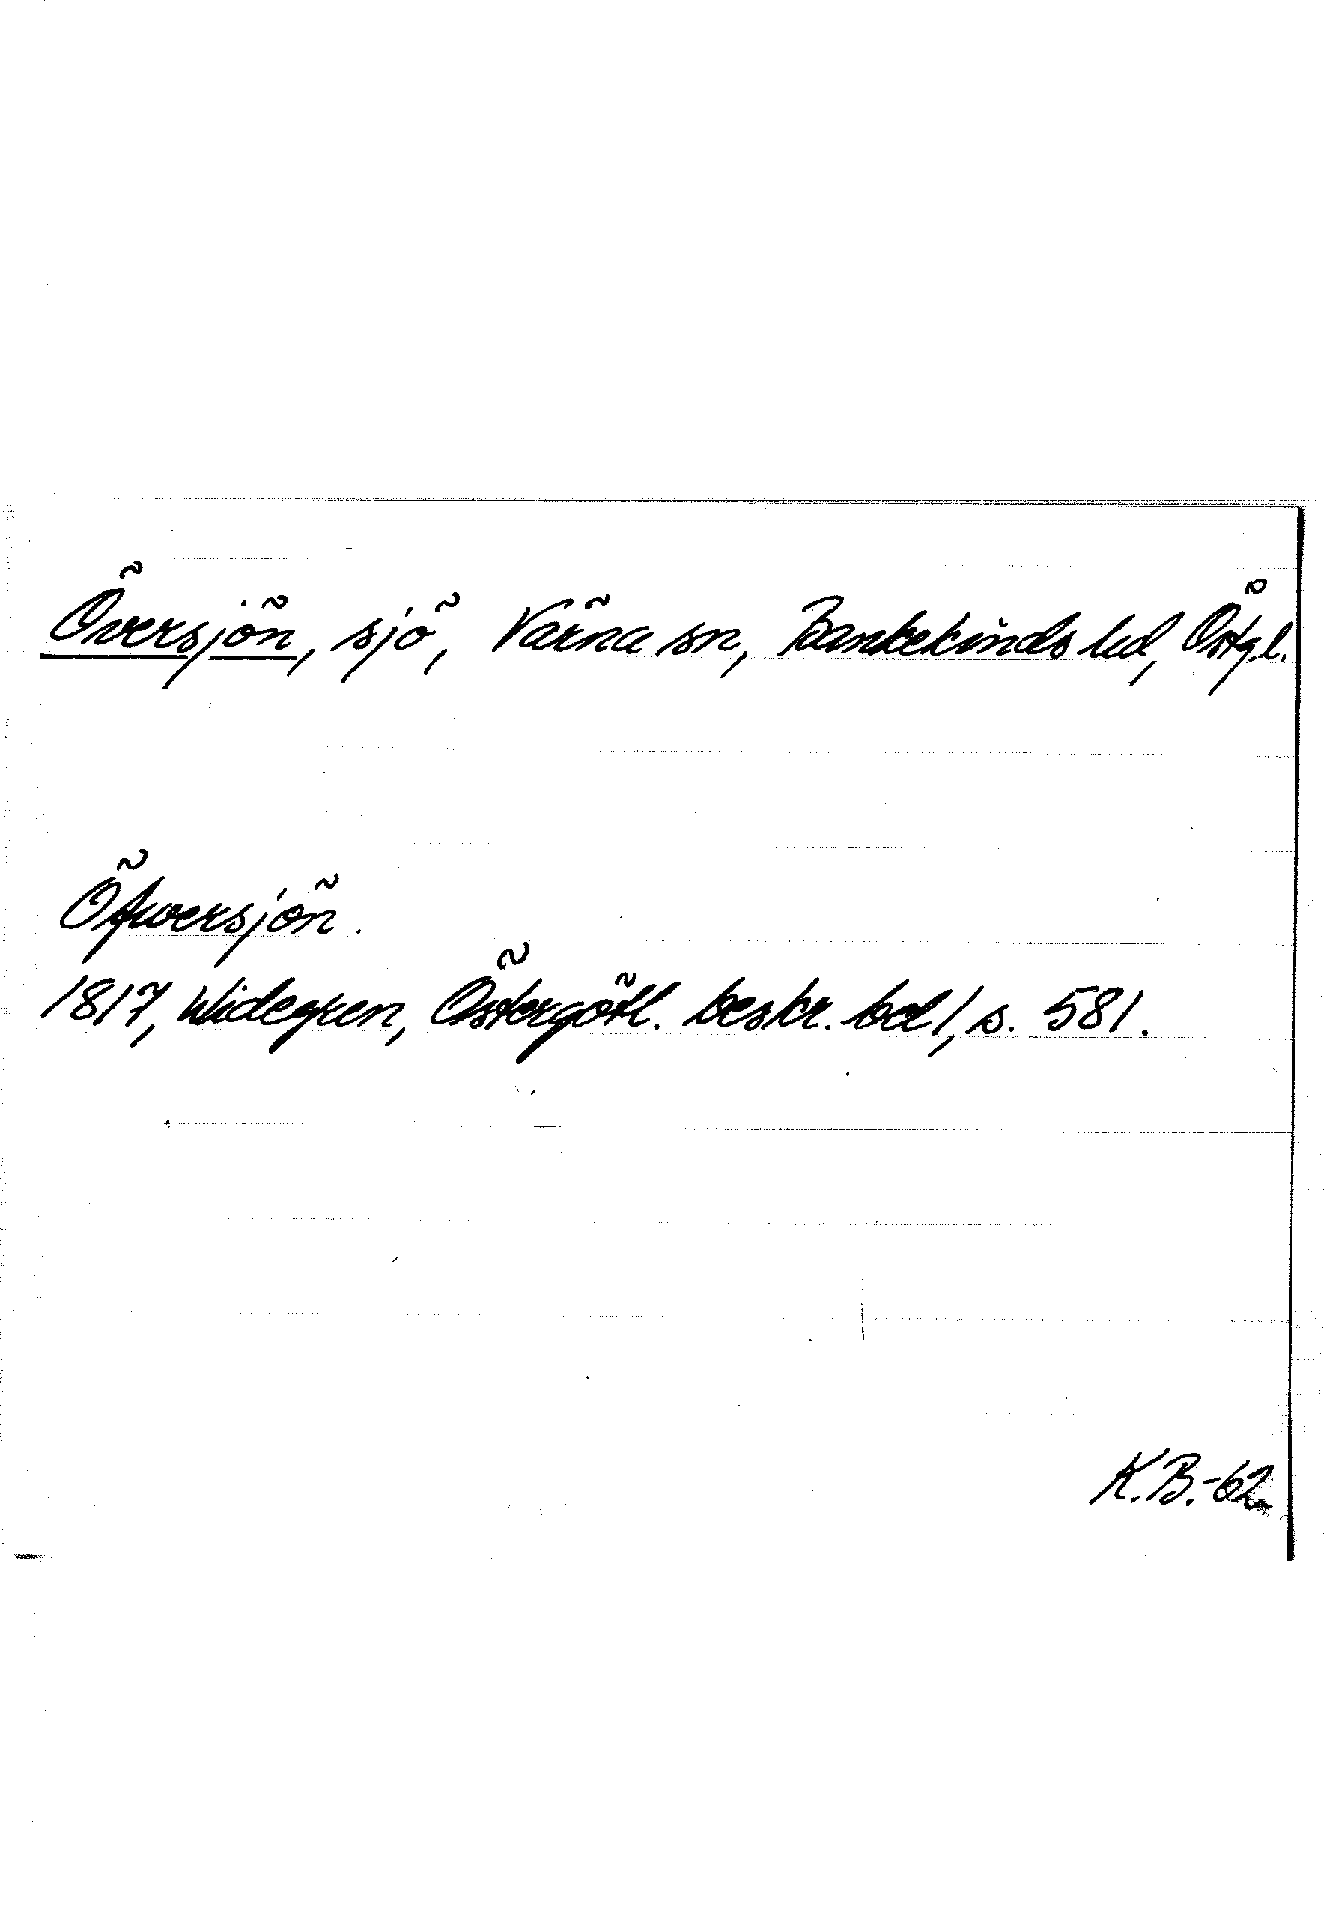 Översjön, sjö, Värna sn, Bankekinds hd, Östg.l.
Öfwersjön.
1817, Widegren, Östergötl. beskr. bd 1, s. 581.
K.B.-62